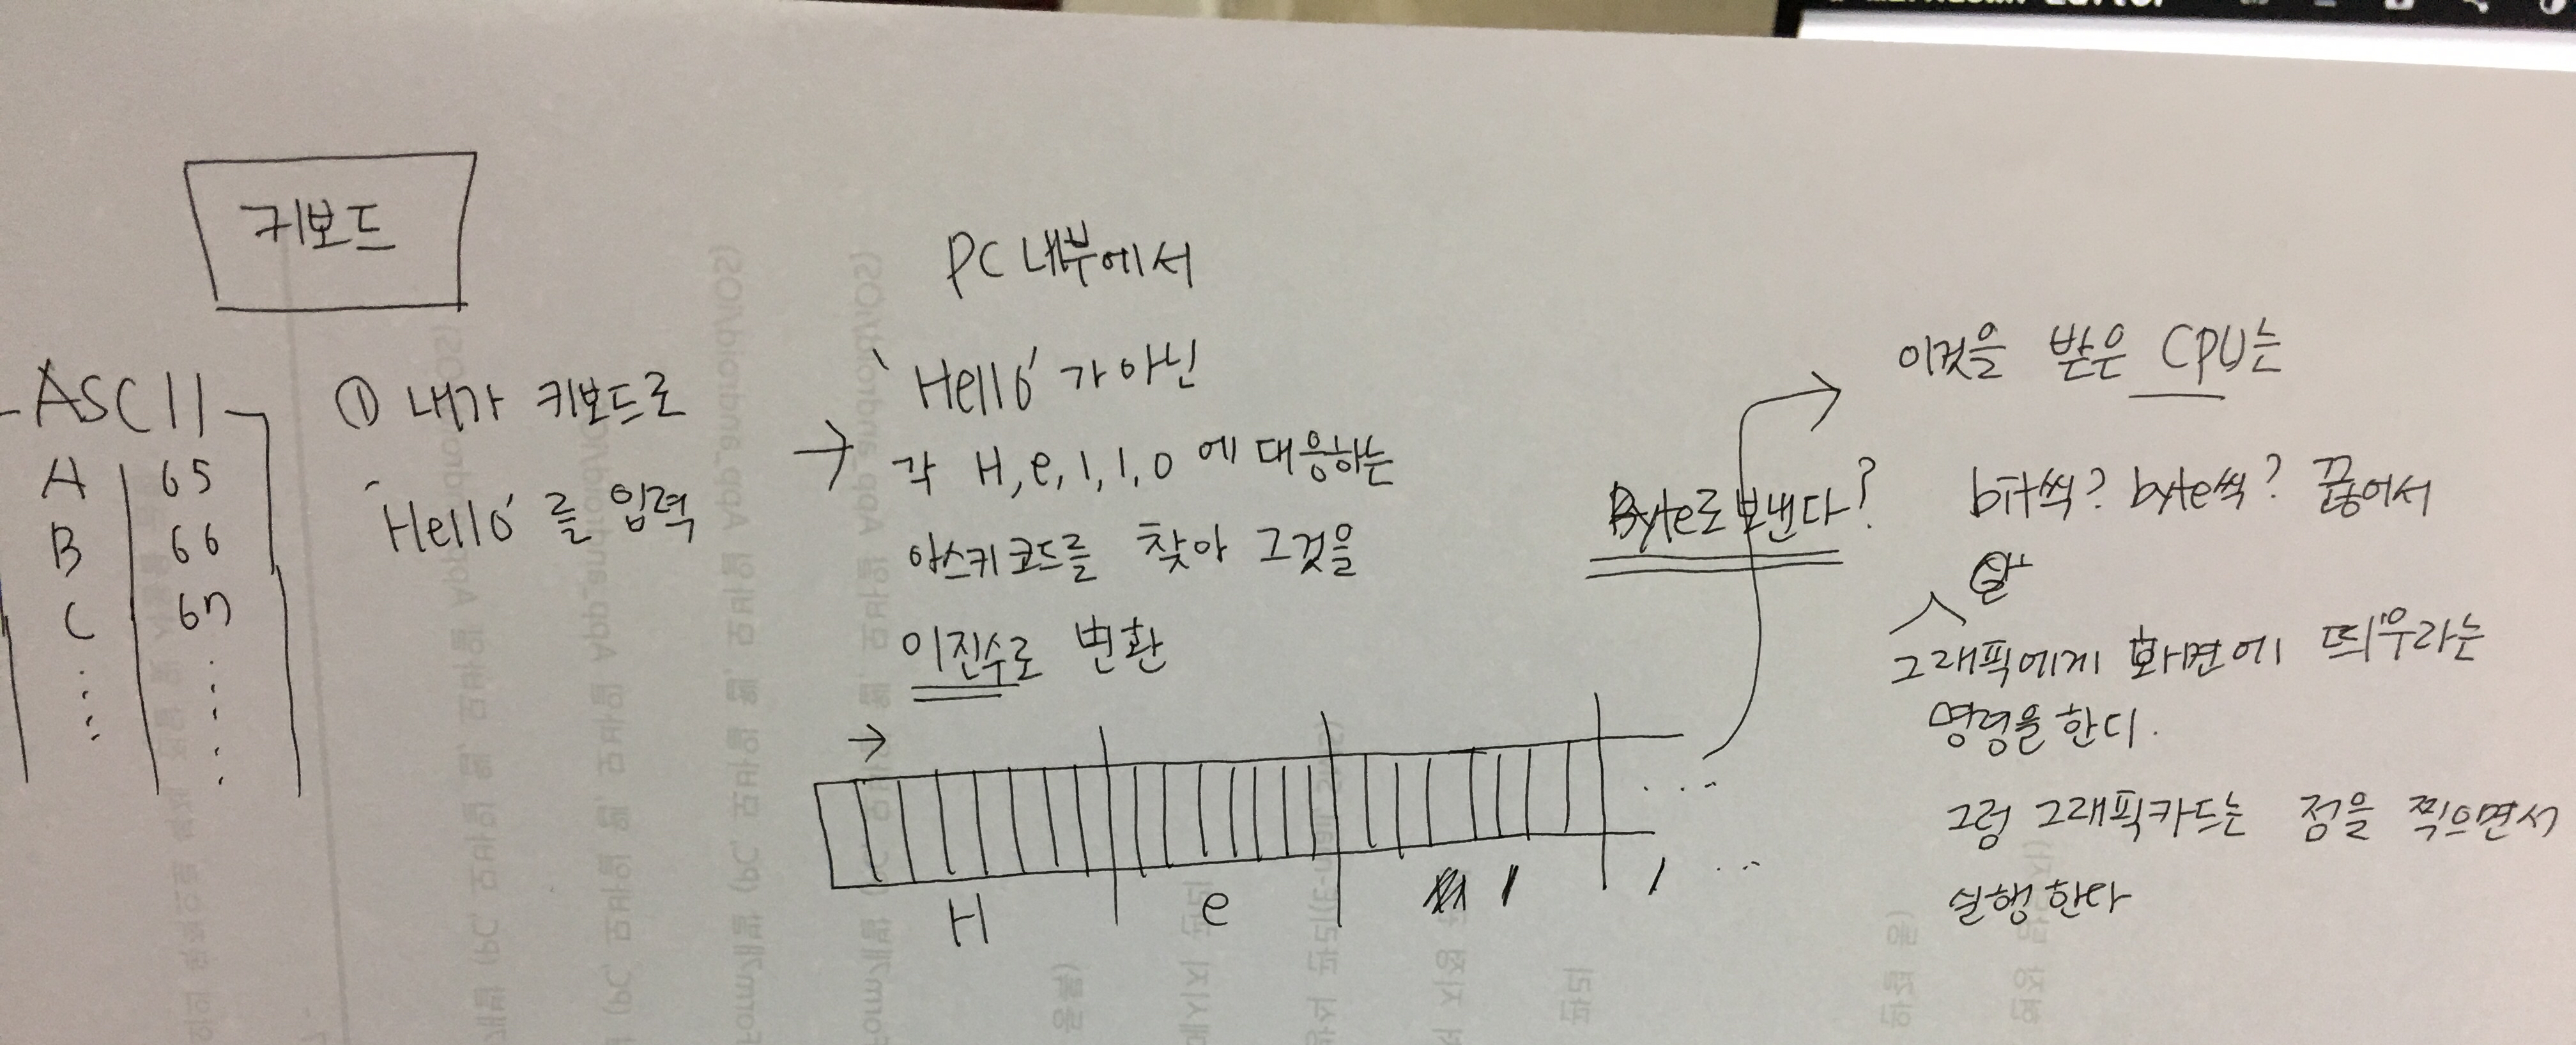 키보드
ASCII
A 65
B 66
C 67
① 내가 키보드로
'Hello'를 입력
→
PC 내부에서
'Hello'가 아닌
각 H,e,l,l,o 에 대응하는
아스키코드를 찾아 그것을
이진수로 변환
→
H e l l ...
Byte로 보낸다?
이것을 받은 CPU는
bit씩? byte씩? 끊어서
그래픽에게 화면에 띄우라는
명령을 한다.
그럼 그래픽카드는 점을 찍으면서
실행한다